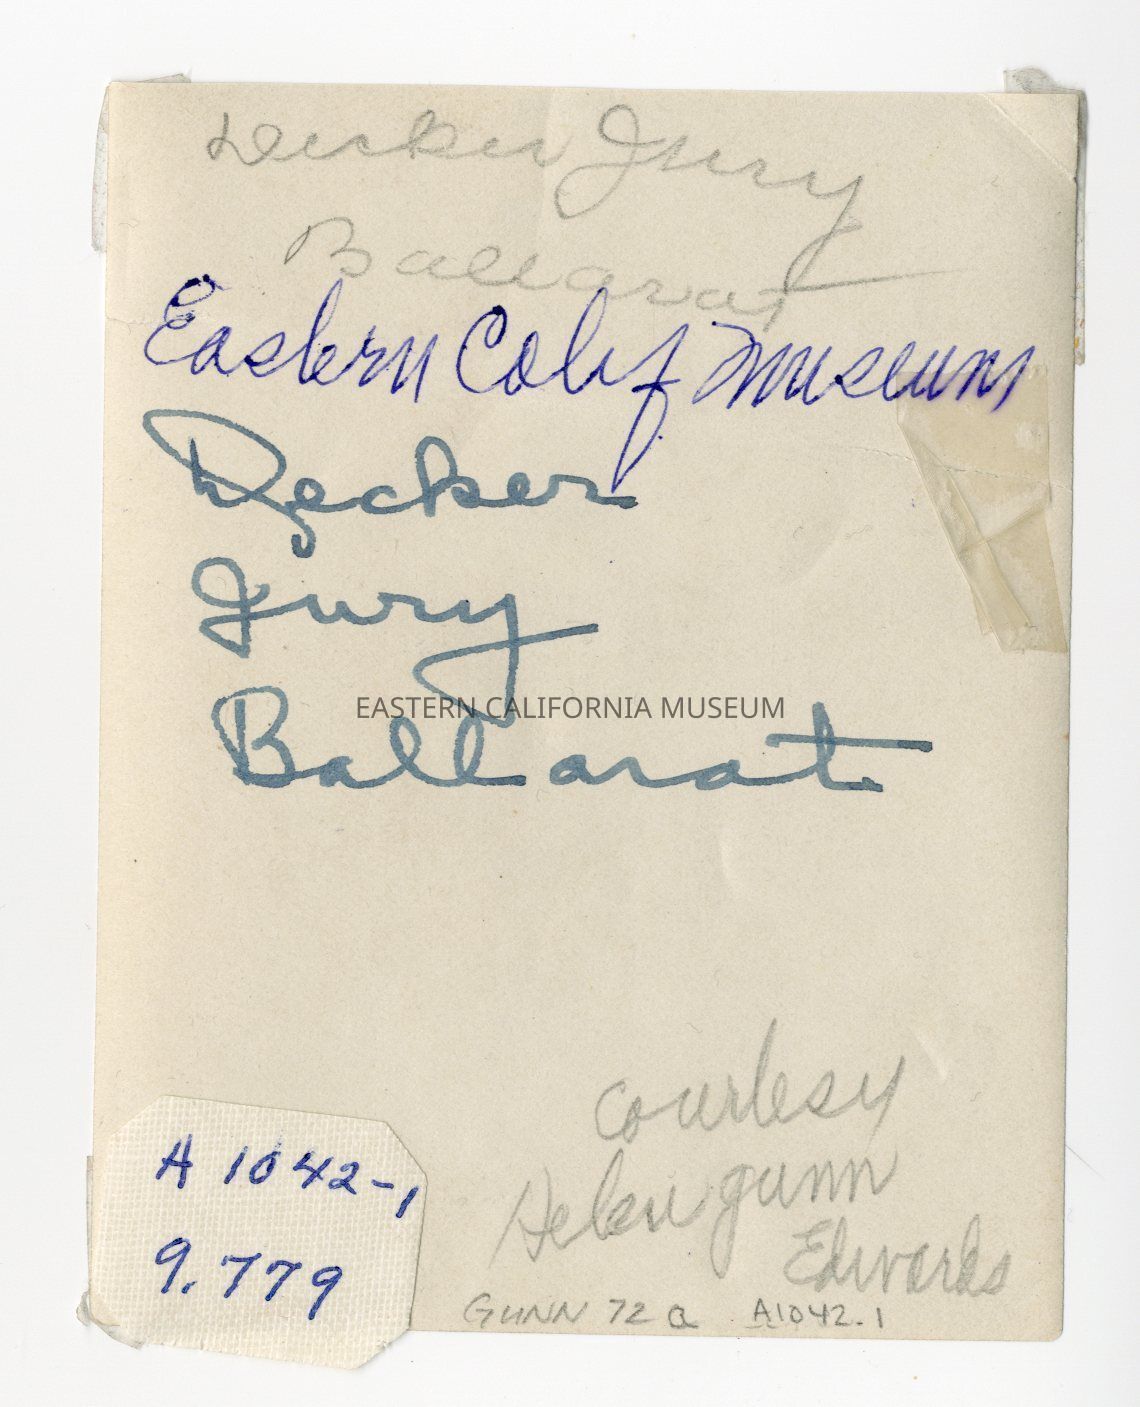 Decker Jury
Ballarat
Eastern Calif Museum
Decker
Jury
EASTERN CALIFORNIA MUSEUM
Ballarat
Courtesy
Helen Gunn
Edwards
GUNN 72 a A1042.1
A 1042-1
9.779